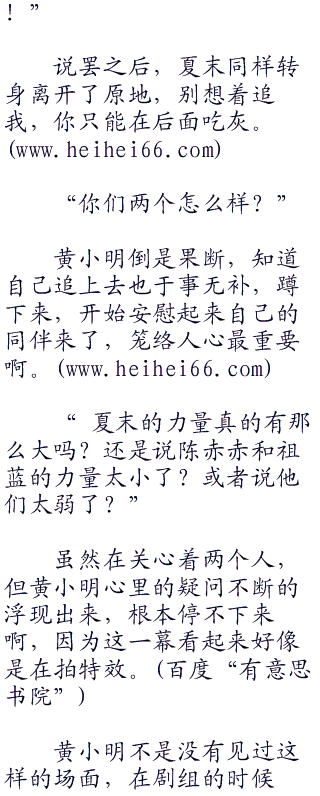 ！”
说罢之后，夏末同样转
身离开了原地，别想着追
我，你只能在后面吃灰。
(www.heihei66.com)
“你们两个怎么样？”
黄小明倒是果断，知道
自己追上去也于事无补，蹲
下来，开始安慰起来自己的
同伴来了，笼络人心最重要
啊。(www.heihei66.com)
“ 夏末的力量真的有那
么大吗？还是说陈赤赤和祖
蓝的力量太小了？或者说他
们太弱了？”
虽然在关心着两个人，
但黄小明心里的疑问不断的
浮现出来，根本停不下来
啊，因为这一幕看起来好像
是在拍特效。(百度“有意思
书院”)
黄小明不是没有见过这
样的场面，在剧组的时候